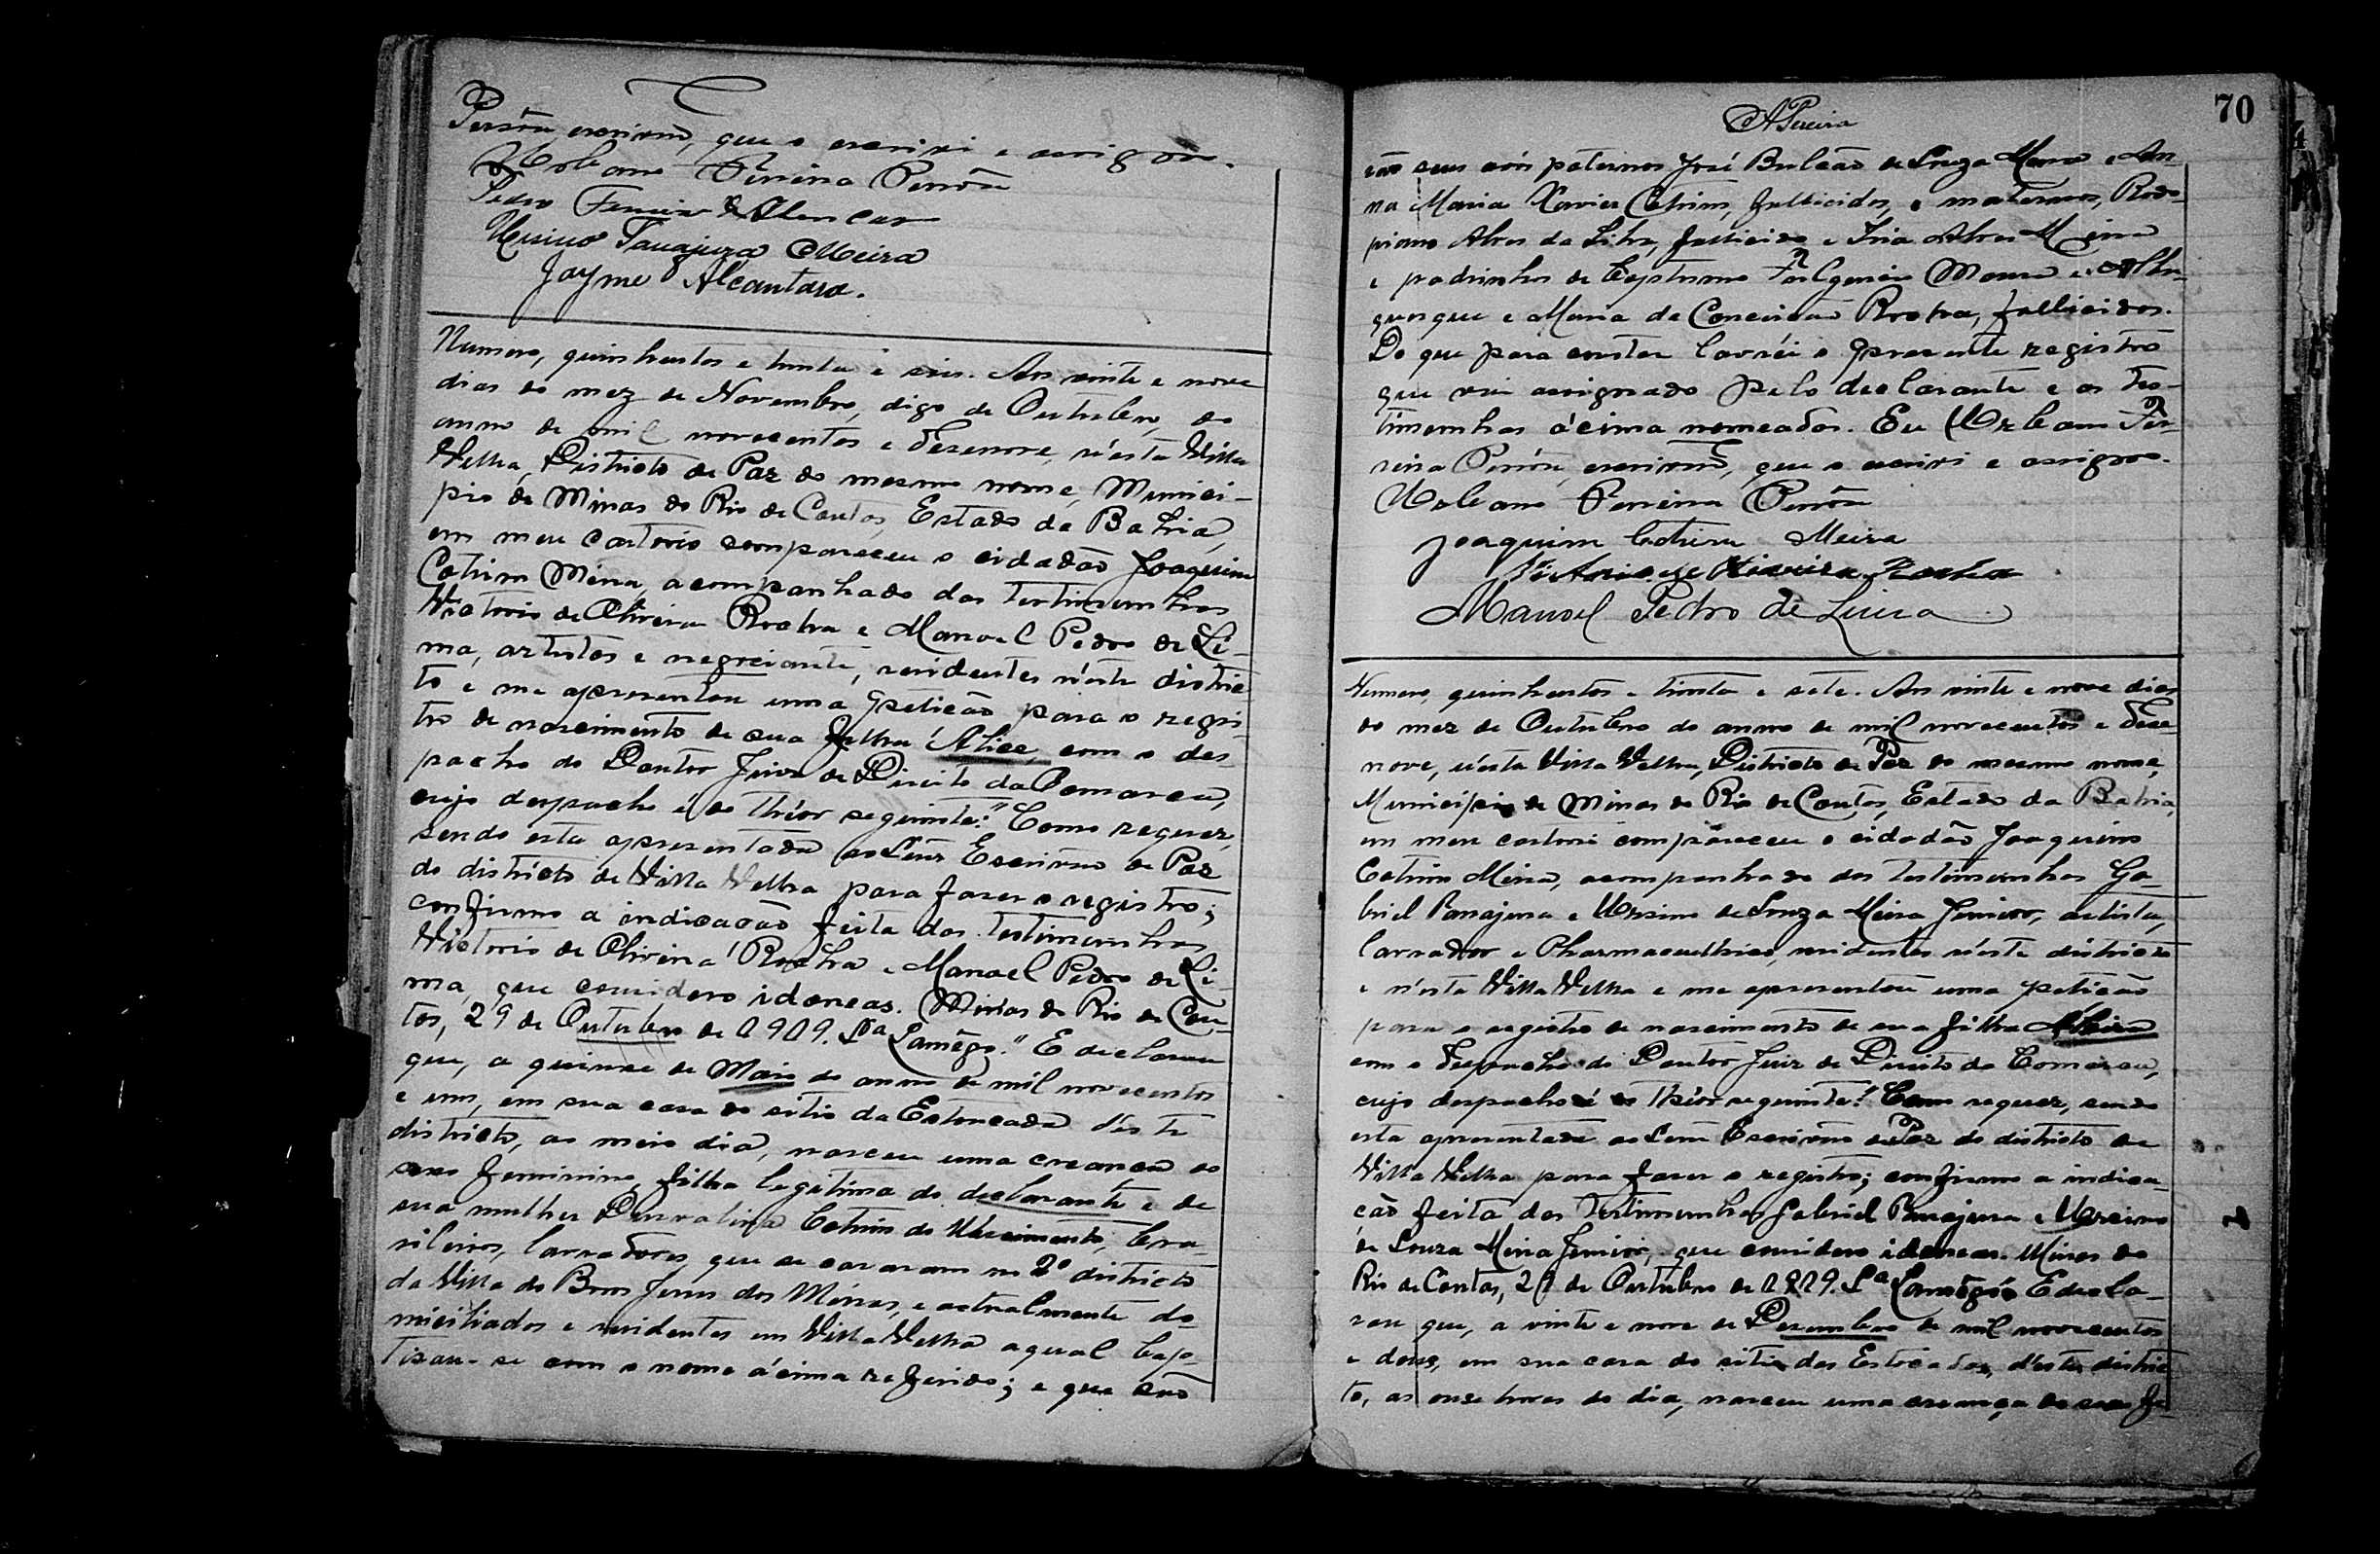 Pessôa, escrivam, que o escrivi e assigno.
Urbano Ferreira Pessôa
Pedro Ferreira d'Alencar
Ursino Tanajura Meira
Jayme Alcantara.
Numero, quinhentos e trinta e seis. Aos vinte e nove
dias do mez de Novembro, digo de Outubro, do
anno de mil novecentos e desenove, n'esta Villa
Velha, Districto de Paz do mesmo nome, Munici-
pio de Minas do Rio de Contas, Estado da Bahia,
em meu cartorio compareceu o cidadão Joaquim
Cotrim Meira, acompanhado das testimunhas
Victorio de Oliveira Rocha e Manoel Pedro de Li-
ma, artistas e negociante, residentes n'este distric-
to e me apresentou uma petição para o regis-
tro de nascimento de sua filha Alice, com o des-
pacho do Doutor Juiz de Direito da Comarca,
cujo despacho é do thêor seguinte: "Como requer,
sendo esta apresentada ao Senr Escrivão de Paz
do districto de Villa Velha para faser o registro;
confirmo a indicação feita das testimunhas
Victorio de Oliveira Rocha e Manoel Pedro de Li-
ma, que considero idoneas. Minas do Rio de Con-
tas, 29 de Outubro de 1919. Sa Lamêgo." E declarou
que, a quinse de Maio do anno de mil novecentos
e um, em sua casa do sitio da Estoucada d'este
districto, ao meio dia, nasceu uma creança do
sexo feminino, filha legitima do declarante e de
sua mulher Durvalina Cotrim do Nascimento, bra-
sileiros, lavradores, que se casaram no 2º districto
da Villa do Bom Jesus dos Meiras, e actualmente do-
miciliados e residentes em Villa Velha a qual bap-
tisou-se com o nome ácima referido; e que são
70
APereira
são seus avós paternos José Bulcão de Souza Meira e An-
na Maria Xavier Cotrim, fallicidos, e maternos, Rod-
piano Alves da Silva, fallicido e Iria Alves Meira
e padrinhos de baptismo Fulgencio Moura e Albu-
querque e Maria da Conceição Rocha, fallicidos.
Do que para constar lavrei o presente registro
que vai assignado pelo declarante e as tes-
timunhas ácima nomeadas. Eu Urbano Fer-
reira Pessôa, escrivam, que o escrivi e assigno.
Urbano Ferreira Pessôa
Joaquim Cotrim Meira
Victorio de Oliveira Rocha
Manoel Pedro de Lima
Numero, quinhentos e trinta e sete. Aos vinte e nove dias
do mez de Outubro do anno de mil novecentos e dese-
nove, n'esta Villa Velha, Districto de Paz do mesmo nome,
Municipio de Minas do Rio de Contas, Estado da Bahia,
em meu cartorio compareceu o cidadão Joaquim
Cotrim Meira, acompanhado das testimunhas Ga-
briel Tanajura e Ursino de Souza Meira Junior, artista,
lavrador e Pharmaceuthico, residentes n'este districto
e n'esta Villa Velha e me apresentou uma petição
para o registro de nascimento de sua filha
com o despacho do Doutor Juiz de Direito da Comarca,
cujo despacho é do thêor seguinte: "Como requer, sendo
esta apresentada ao Senr Escrivão de Paz do districto de
Villa Velha para faser o registro; confirmo a indica-
ção feita das testimunhas Gabriel Tanajura e Ursino
de Souza Meira Junior, que considero idoneas. Minas do
Rio de Contas, 29 de Outubro de 1919. Sa Lamêgo" E decla-
rou que, a vinte e nove de Desembro de mil novecentos
e dous, em sua casa do sitio das Estocadas, d'este distric-
to, as onse horas do dia, nasceu uma creança do sexo fe-